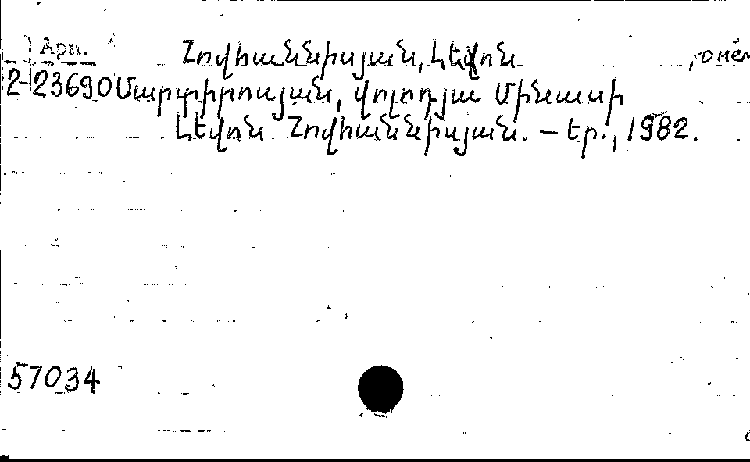 1 Арm. Հովհաննիսյան, Լևոն
2-23690 Մարտիրոսյան, Վոլոդյա Մինասի
Լևոն Հովհաննիսյան. — Եր., 1982.
57034